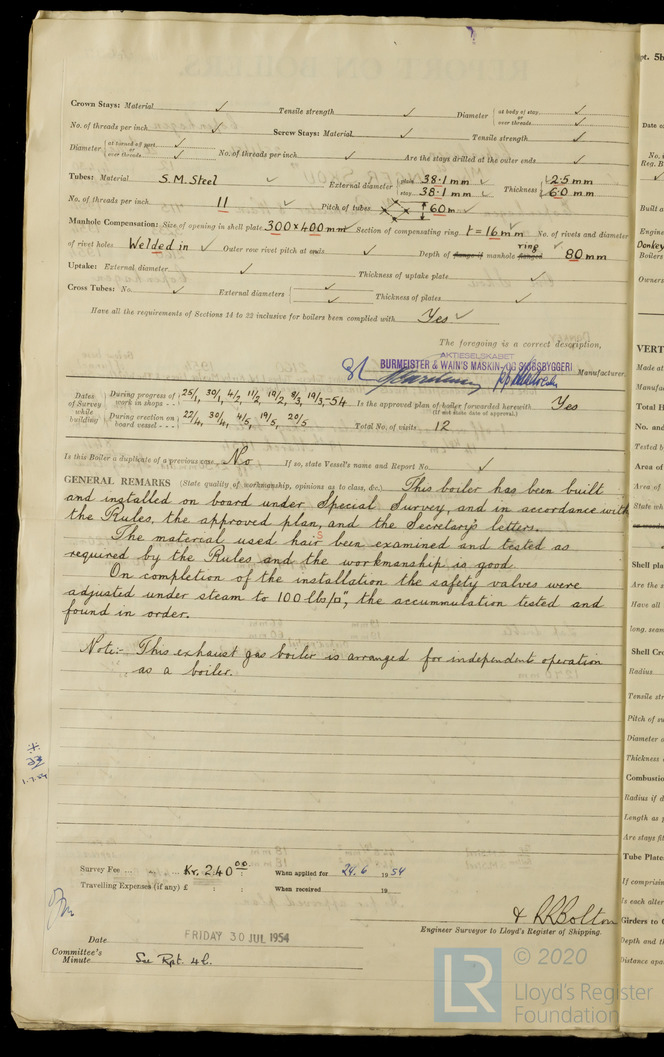 Crown Stays: Material ✓ Tensile strength ✓ Diameter { at body of stay, ✓ or over threads ✓
No. of threads per inch ✓ Screw Stays: Material ✓ Tensile strength ✓
Diameter { at turned off part, ✓ or over threads ✓ No. of threads per inch ✓ Are the stays drilled at the outer ends ✓
Tubes: Material S.M. Steel ✓ External diameter { plain 38·1 mm ✓ stay 38·1 mm ✓ Thickness { 2·5 mm 6·0 mm
No. of threads per inch 11 ✓ Pitch of tubes 60 m ✓
Manhole Compensation: Size of opening in shell plate 300 x 400 mm Section of compensating ring t = 16 mm ✓ No. of rivets and diameter
of rivet holes Welded in ✓ Outer row rivet pitch at ends ✓ Depth of flange if manhole flanged ring ✓ 80 mm
Uptake: External diameter ✓ Thickness of uptake plate ✓
Cross Tubes: No. ✓ External diameters { ✓ ✓ Thickness of plates ✓
Have all the requirements of Sections 14 to 22 inclusive for boilers been complied with Yes ✓
The foregoing is a correct description,
AKTIESELSKABET
BURMEISTER & WAIN'S MASKIN- OG SKIBSBYGGERI Manufacturer.
Dates of Survey while building { During progress of work in shops - - 25/1, 30/1, 4/2, 11/2, 19/2, 8/3, 19/3, -54 Is the approved plan of boiler forwarded herewith Yes
(If not state date of approval.)
During erection on board vessel - - - 22/4, 30/4, 4/5, 19/5, 20/5 Total No. of visits 12
Is this Boiler a duplicate of a previous case No If so, state Vessel's name and Report No. ✓
GENERAL REMARKS (State quality of workmanship, opinions as to class, &c.) This boiler has been built
and installed on board under Special Survey, and in accordance with
the Rules, the approved plan, and the Secretary's letters.
The material used has been examined and tested as
required by the Rules and the workmanship is good.
On completion of the installation the safety valves were
adjusted under steam to 100 lbs/□", the accummulation tested and
found in order.
Note:- This exhaust gas boiler is arranged for independent operation
as a boiler.
1.7.54
Survey Fee ... Kr. 240 00 : : When applied for 24.6 1954
Travelling Expenses (if any) £ : : When received 19
R R Bolton
Engineer Surveyor to Lloyd's Register of Shipping.
Date FRIDAY 30 JUL 1954
Committee's
Minute See Rpt. 4b.
LR © 2020
Lloyd's Register
Foundation
pt. 5b
Date o
No. i
Reg. B
Built a
Engine
Donkey
Boilers
Owners
VERT
Made at
Manufac
Total H
No. and
Tested b
Area of
Area of
State wh
Shell pla
Are the s
Have all
long. seam
Shell Cro
Radius
Tensile str
Pitch of
Diameter o
Thickness
Combustio
Radius if d
Length as p
Are stays fi
Tube Plate
If comprisin
Is each alter
Girders to C
Depth and t
Distance apa